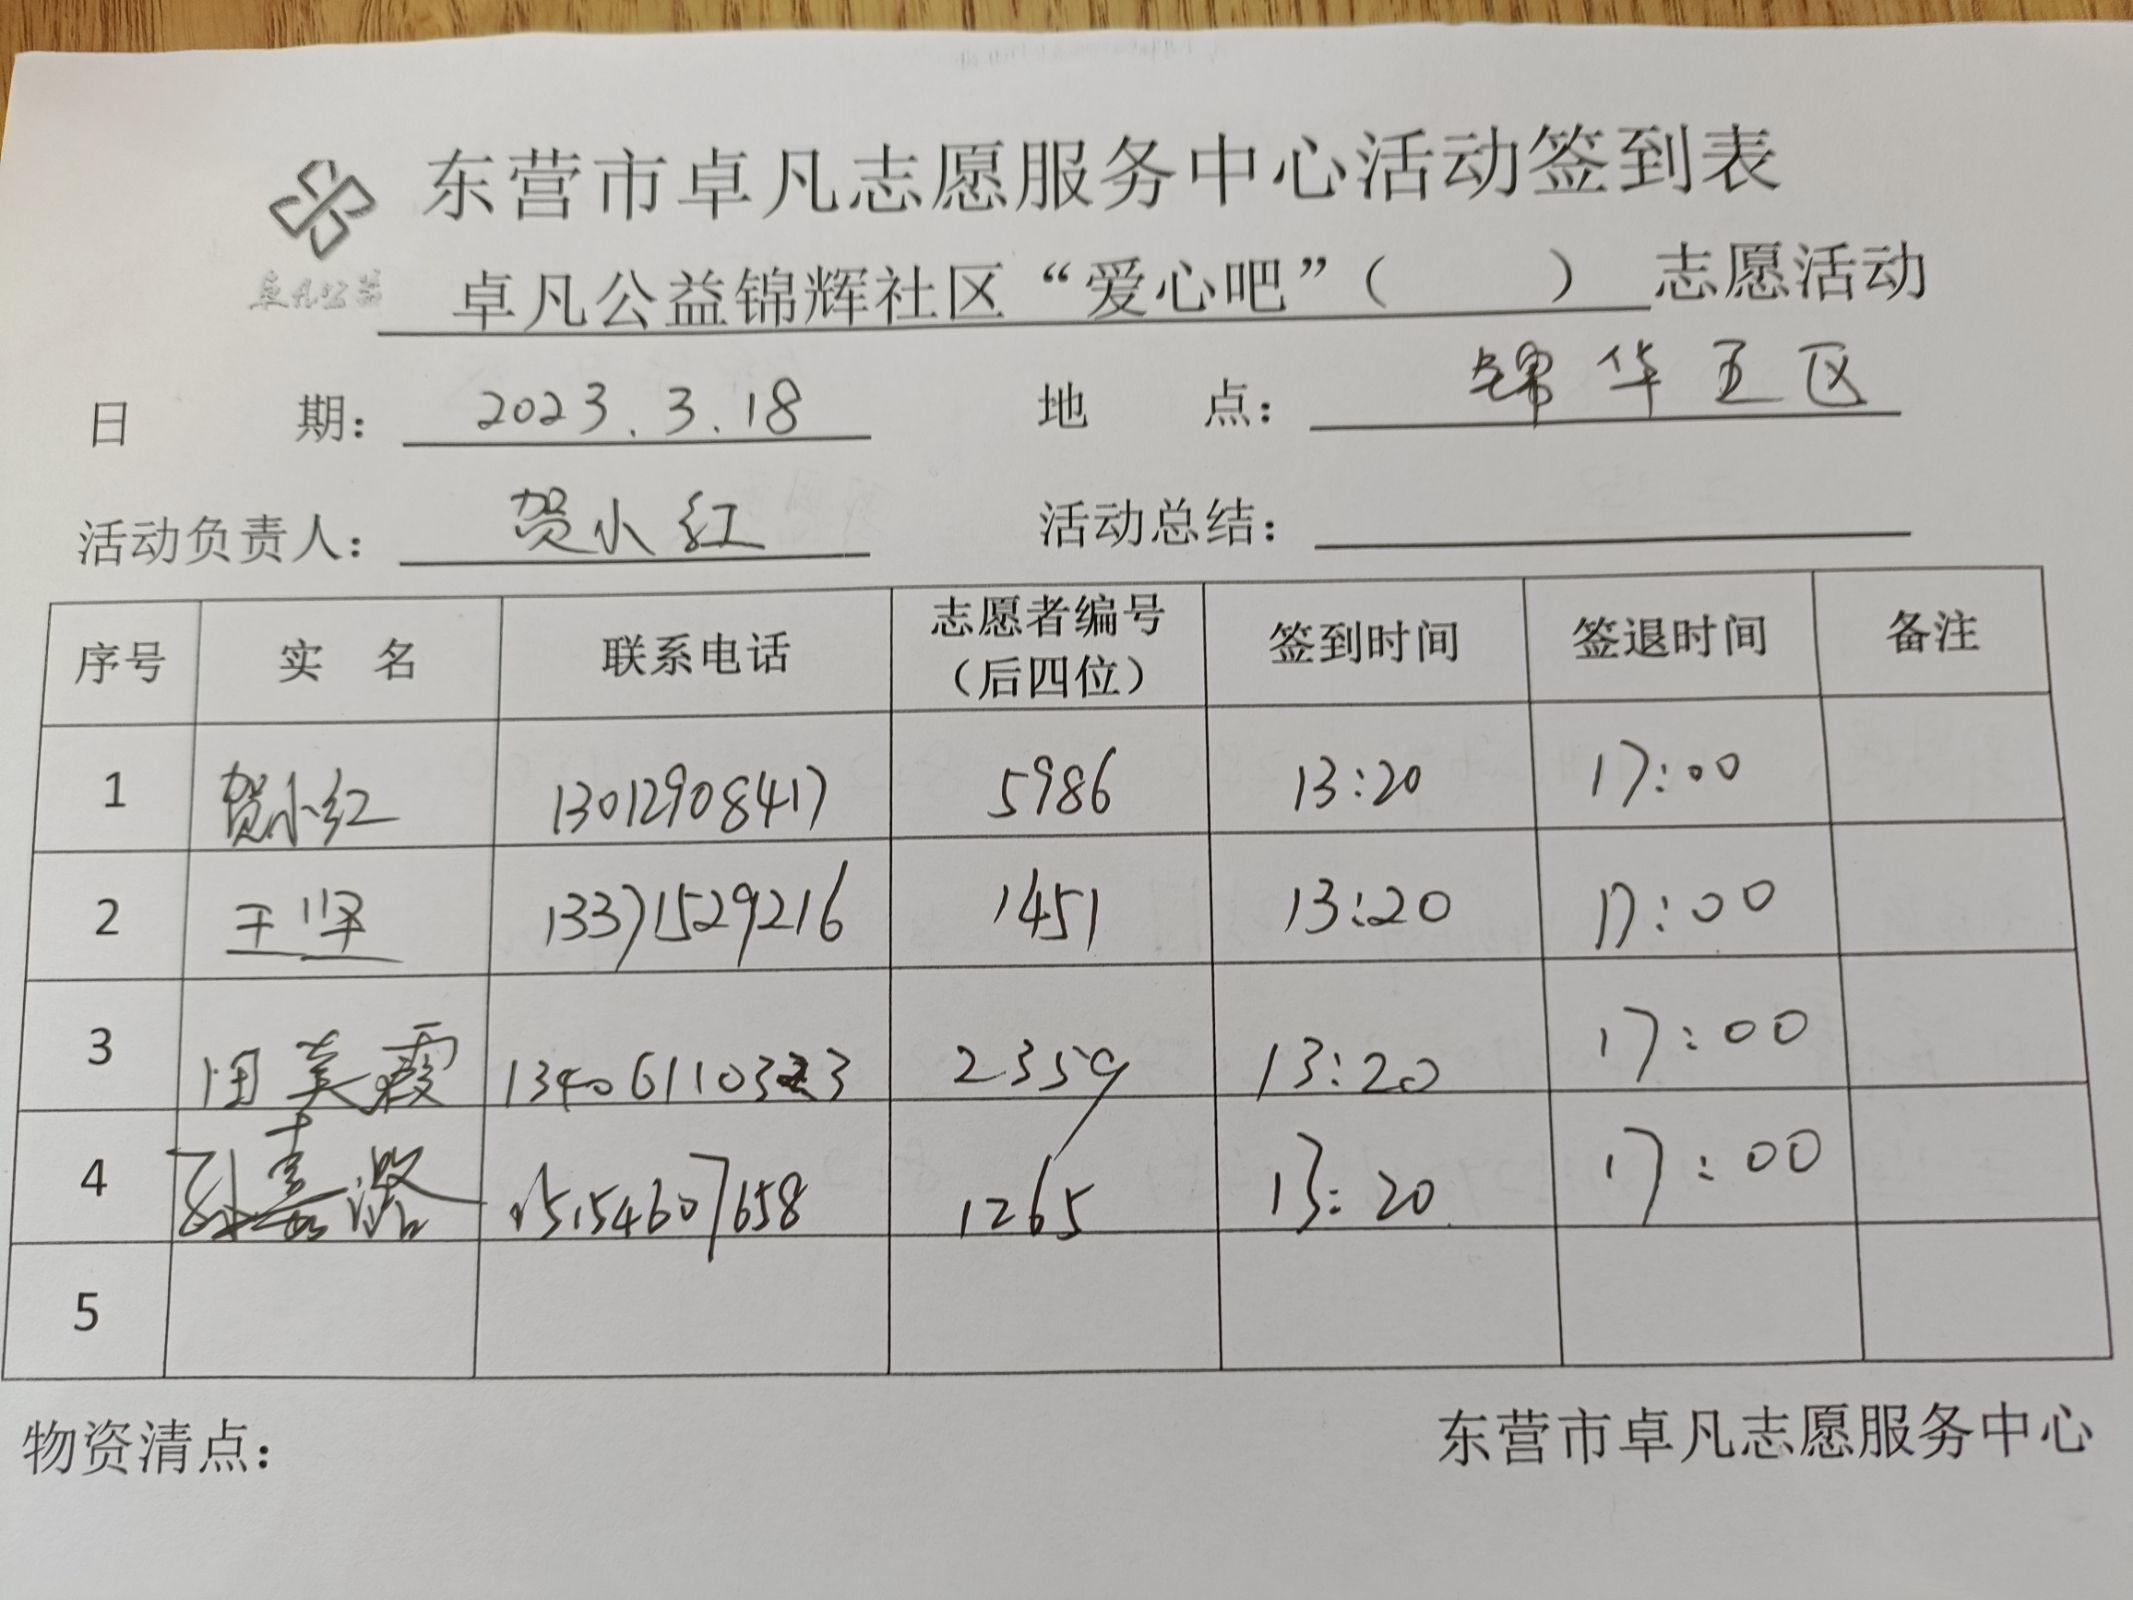 东营市卓凡志愿服务中心活动签到表
卓凡公益
卓凡公益锦辉社区“爱心吧”（ ）志愿活动
日 期： 2023.3.18 地 点： 锦华五区
活动负责人： 贺小红 活动总结：
序号 实 名 联系电话 志愿者编号（后四位） 签到时间 签退时间 备注
1 贺小红 13012908417 5986 13:20 17:00
2 王坚 13371529216 1451 13:20 17:00
3 田美霞 2359 13:20 17:00
4 孙嘉潞 15154607658 1265 13:20 17:00
5
物资清点： 东营市卓凡志愿服务中心